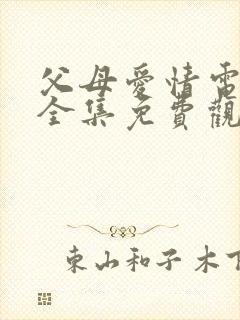 父母愛情電
全集免費觀
東山和子木下